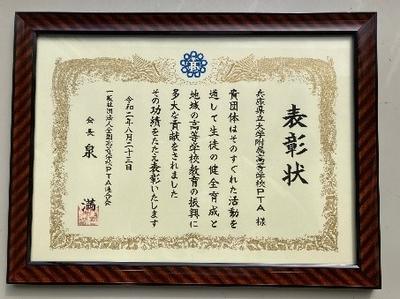 表彰状
兵庫県立大学附属高等学校PTA 様
貴団体はそのすぐれた活動を
通して生徒の健全育成と
地域の高等学校教育の振興に
多大な貢献をされました
その功績をたたえ表彰いたします
令和二年八月二十三日
一般社団法人全国高等学校PTA連合会
会長 泉 満